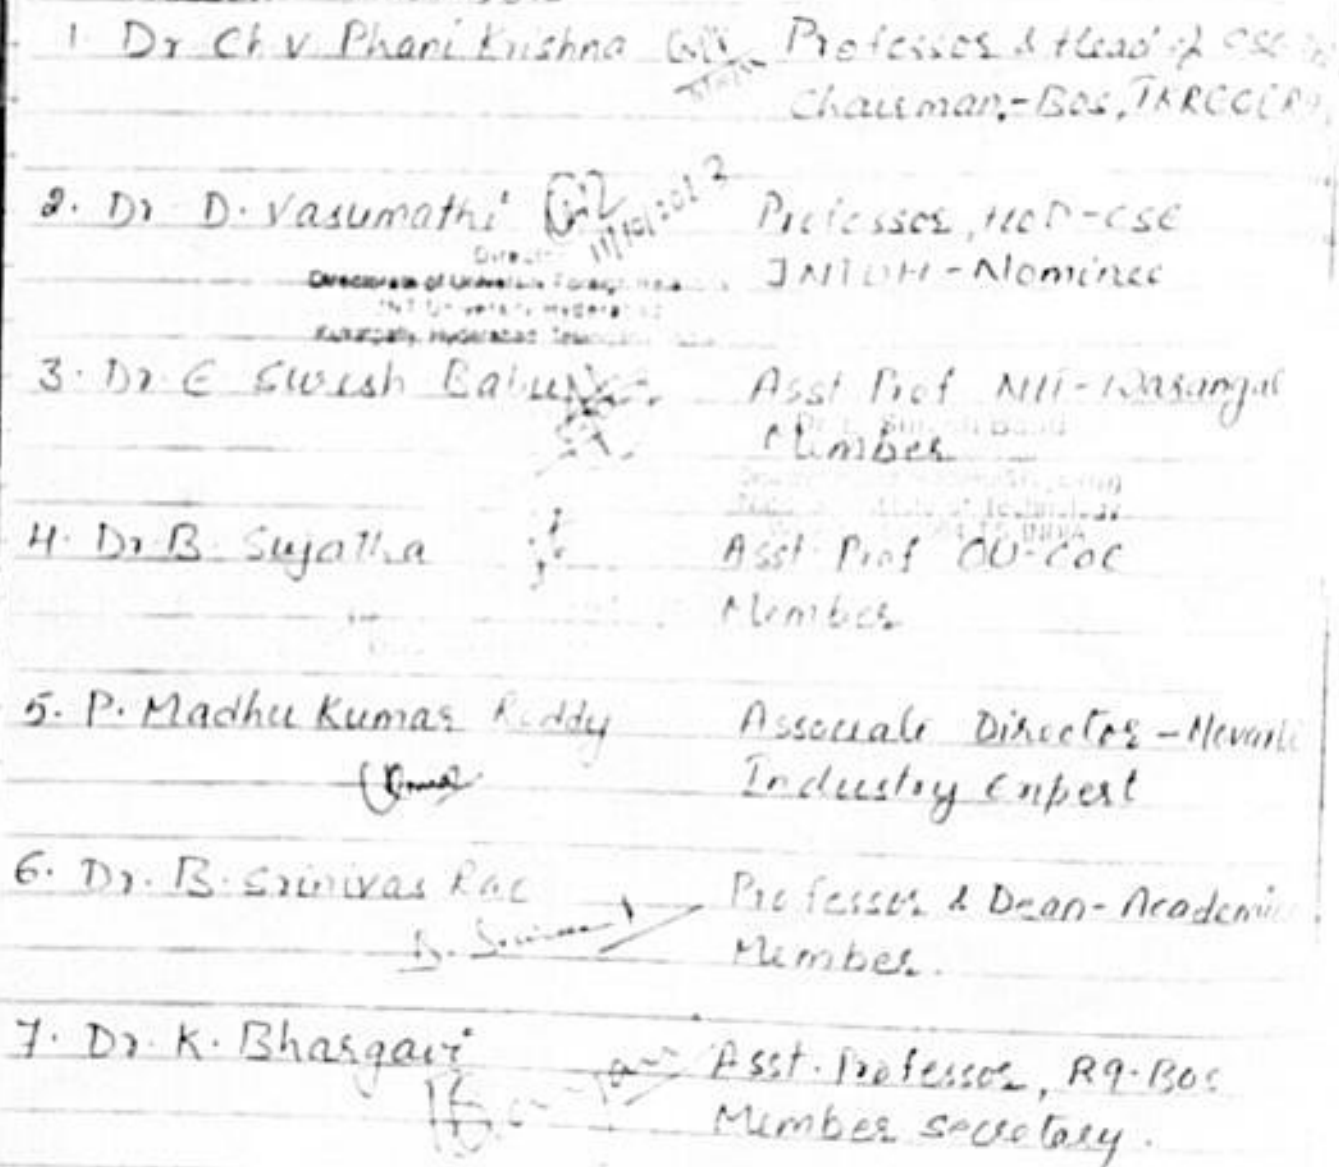 1. Dr Ch V Phani Krishna Professor & Head of CSE
Chairman,-Bos, TKRCC(R9)
2. Dr D. Vasumathi 11/10/2023 Professor, HOD-CSE
JNTUH-Nominee
Directorate of University Foreign
JNT University Hyderabad
Kukatpally, Hyderabad
3. Dr. E Suresh Babu Asst Prof NIT-Warangal
Member
4. Dr B. Sujatha Asst. Prof OU-COE
Member
5. P. Madhu Kumar Reddy Associate Director -
Industry Expert
6. Dr. B. Srinivas Rao Professor & Dean-Academic
B. Member.
7. Dr. K. Bhargavi Asst. Professor, R9-Bos
Member secretary.